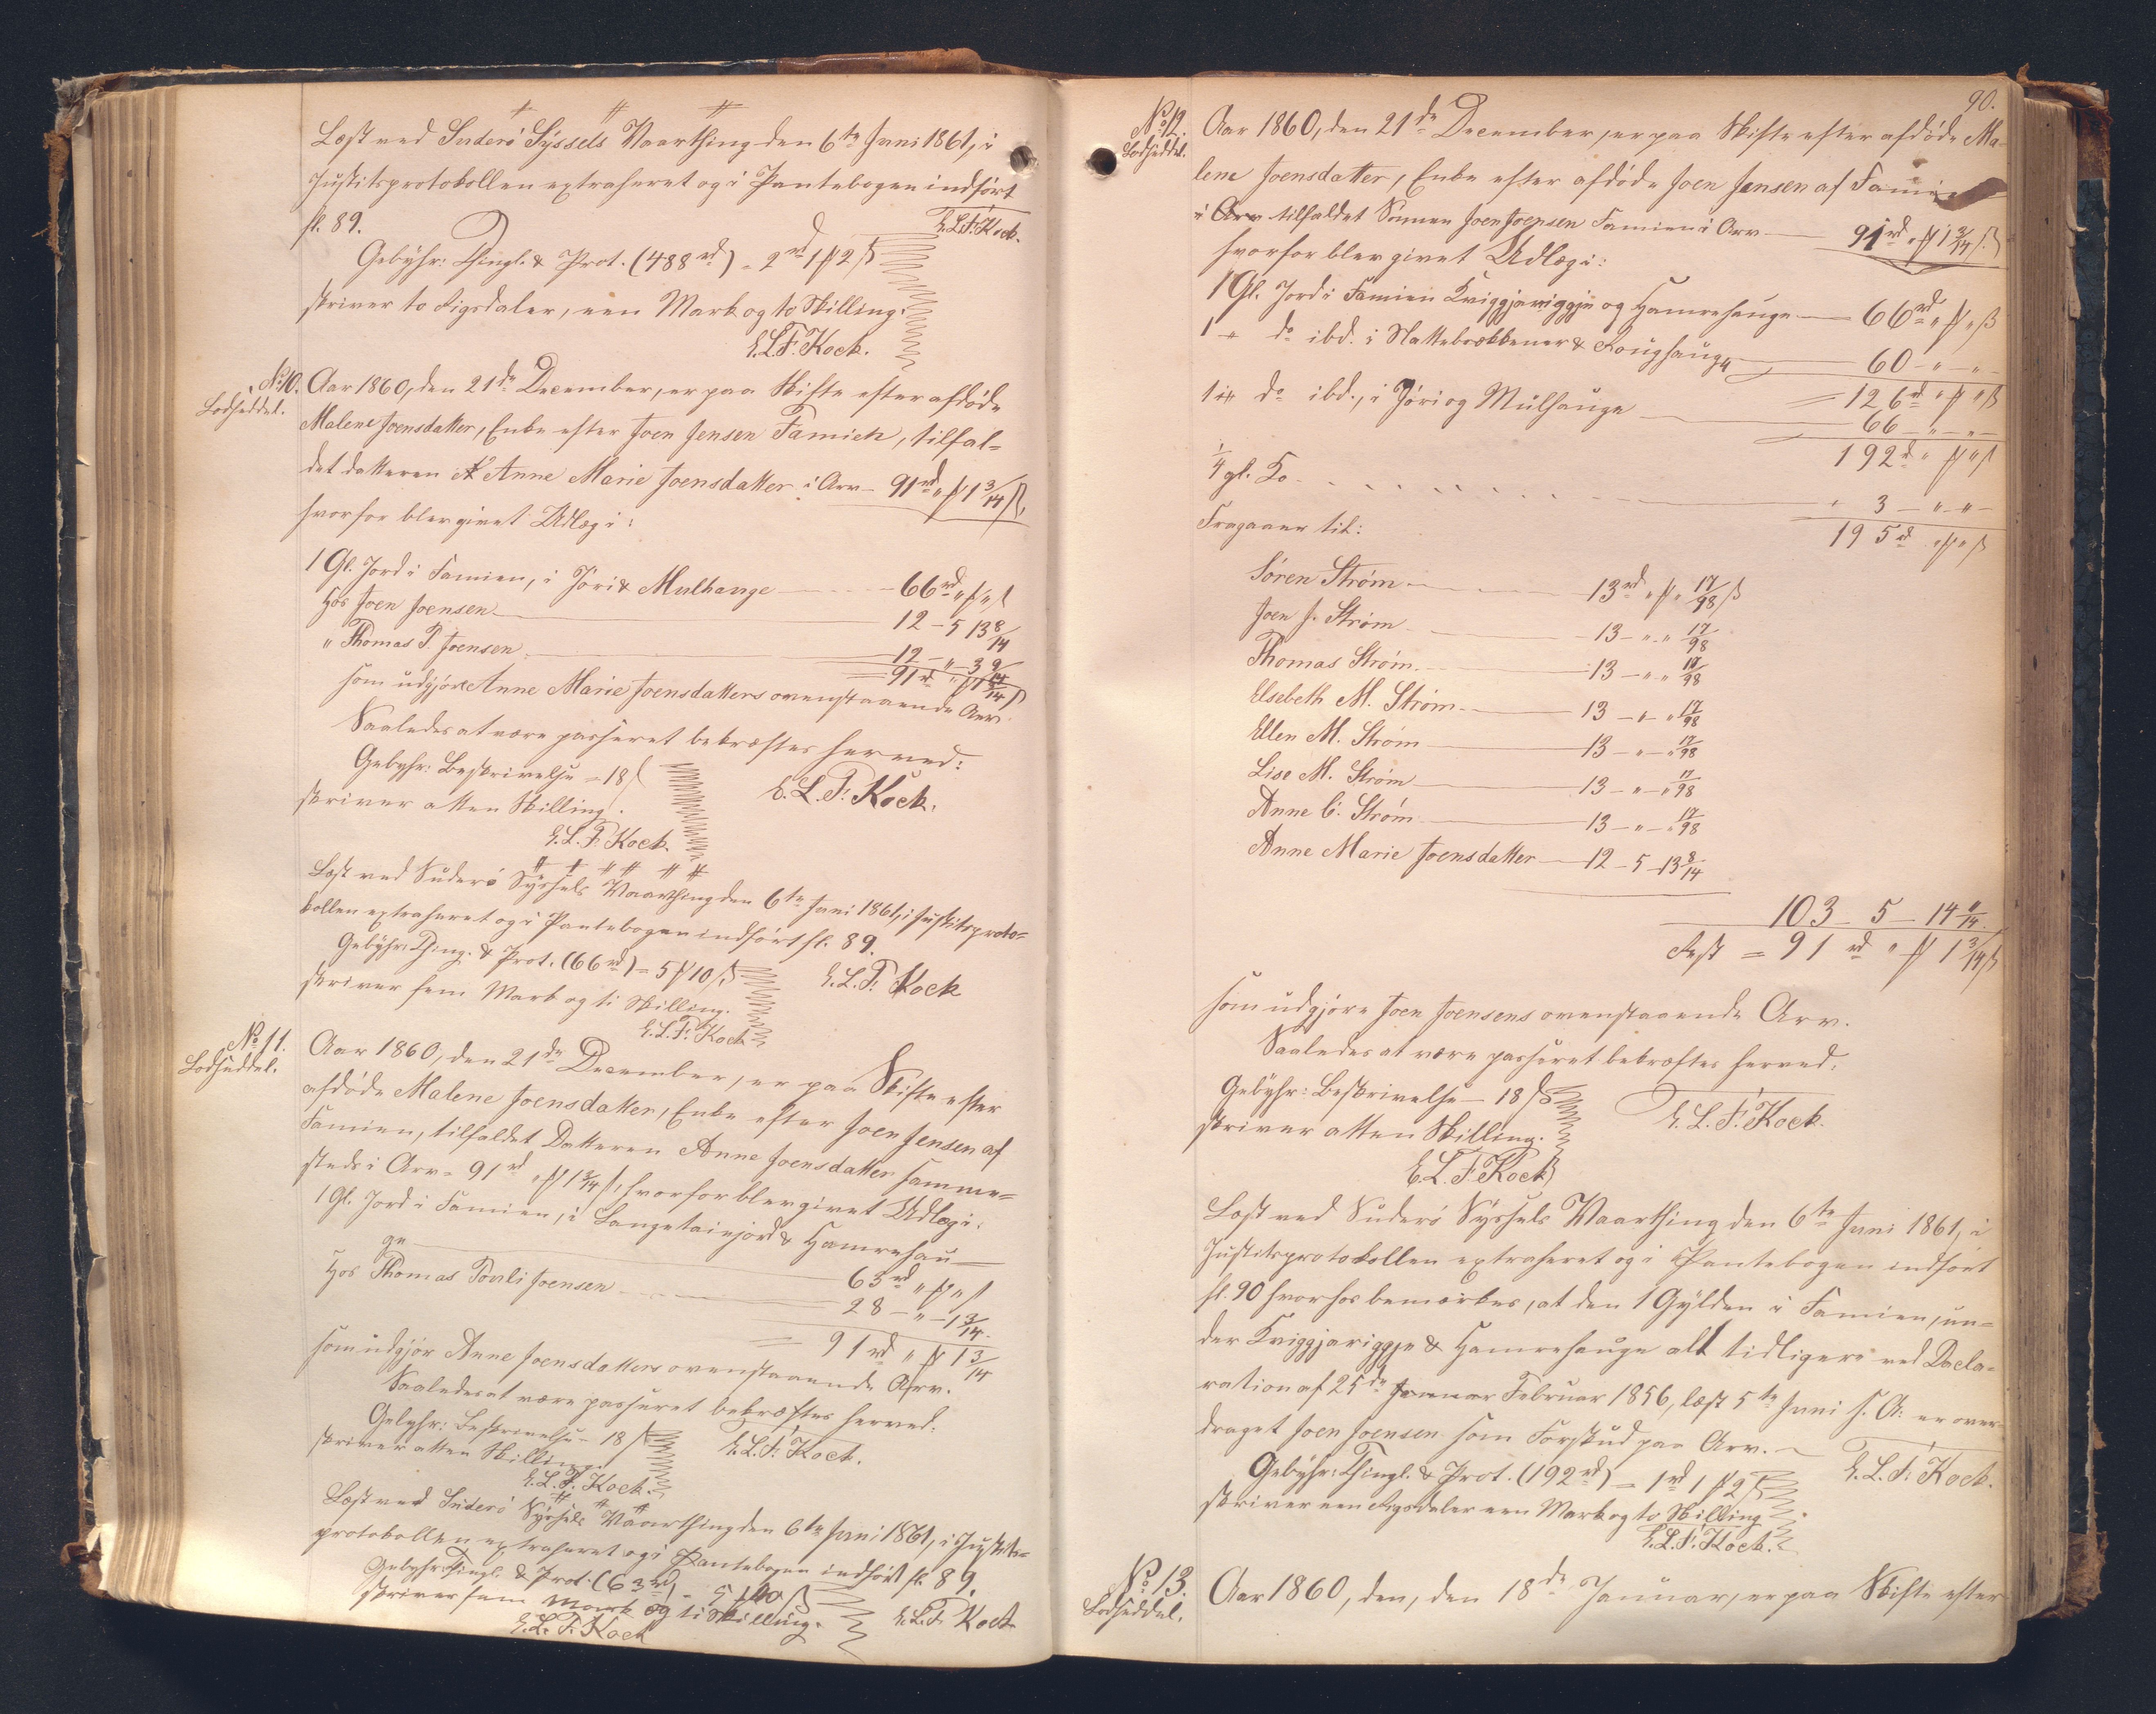 Læst ved Suderö Syssels Vaarthing den 6te Juni 1861, i
Justitsprotokollen extraheret og i Pantebogen indført
fl. 89.
E.L.F. Kock.
Gebyhr: Thingl. & Prot. (488 rd) = 2 rd 1 # 2 ß
skriver to Rigsdaler, een Mark og to Skilling.
E.L.F. Kock.
No 10.
Lodseddel.
Aar 1860, den 21de December, er paa Skifte efter afdöde
Malene Joensdatter, Enke efter Joen Jensen Famien, tilfal=
det datteren Anne Marie Joensdatter i Arv - 91 rd " # 1 3/14 ß,
hvorfor blev givet Udlæg i:
1 Gl. Jord i Famien, i Jöri & Mulhauge - 66 rd " # " ß
Hos Joen Joensen - 12 - 5 13 8/14
" Thomas P. Joensen - 12 - " - 3 9/14
= 91 rd " # 1 3/14 ß
som udgjör Anne Marie Joensdatters ovenstaaende Arv.
Saaledes at være passeret bekræftes herved:
Gebyhr: Beskrivelse = 18 ß
E.L.F. Kock.
skriver atten Skilling.
E.L.F. Kock.
Læst ved Suderö Syssels Vaarthing den 6te Juni 1861, i Justitsproto=
kollen extraheret og i Pantebogen indfört fl. 89.
Gebyhr: Thing. & Prot. (66 rd) = 5 # 10 ß
E.L.F. Kock
skriver fem Mark og ti Skilling.
E.L.F. Kock
No 11.
Lodseddel.
Aar 1860, den 21de December, er paa Skifte efter
afdöde Malene Joensdatter, Enke efter Joen Jensen af
Famien, tilfaldet Datteren Anne Joensdatter samme=
steds i Arv = 91 rd " # 1 3/14 ß, hvorfor blev givet Udlæg i:
1 Gl. Jord i Famien, i Langetaiejord & Hamrehau-
ge - 63 rd " # " ß
Hos Thomas Pouli Joensen - 28 - " - 1 3/14
= 91 rd " # 1 3/14
som udgjör Anne Joensdatters ovenstaaende Arv.
Saaledes at være passeret bekræftes herved.
Gebyhr: Beskrivelse = 18 ß
E.L.F. Kock.
skriver atten Skilling.
E.L.F. Kock.
Læst ved Suderö Syssels Vaarthing den 6te Juni 1861, i Justits=
protokollen extraheret og i Pantebogen indfört fl. 89.
Gebyhr: Thingl. & Prot. (63 rd) = 5 # 10 ß
skriver fem Mark og ti Skilling.
E.L.F. Kock
E.L.F. Kock
90.
No 12.
Lodseddel.
Aar 1860, den 21de December, er paa Skifte efter afdöde Ma=
lene Joensdatter, Enke efter afdöde Joen Jensen af Famien
i Arv tilfaldet Sönnen Joen Joensen Famien i Arv - 91 rd " # 1 3/14 ß
hvorfor blev givet Udlæg i:
1 Gl. Jord i Famien Kviggjariggje og Hamrehauge - 66 rd " # " ß
1 - do ibd. i Nattebrökkener & Roughauge - 60 - " -
= 126 rd " # " ß
1 do ibd., i Jöri og Mulhauge - 66 - " - " -
192 rd " # " ß
1/4 gl. Ko - 3 - " - " -
195 rd " # " ß
Fragaaer til:
Sören Ström - 13 rd " # " 17/98 ß
Joen J. Ström - 13 - " - " 17/98
Thomas Ström - 13 - " - " 17/98
Elsebeth M. Ström - 13 - " - " 17/98
Ellen M. Ström - 13 - " - " 17/98
Lise M. Ström - 13 - " - " 17/98
Anne C. Ström - 13 - " - " 17/98
Anne Marie Joensdatter - 12 - 5 - 13 8/14
103 - 5 - 14 11/14
Rest = 91 rd " # 1 3/14 ß
som udgjöre Joen Joensens ovenstaaende Arv.
Saaledes at være passeret bekræftes herved.
Gebyhr: Beskrivelse - 18 ß
E.L.F. Kock.
skriver atten Skilling.
E.L.F. Kock
Læst ved Suderö Syssels Vaarthing den 6te Juni 1861, i
Justitsprotokollen extraheret og i Pantebogen indfört
fl. 90 hvorhos bemærkes, at den 1 Gylden i Famien, un=
der Kviggjariggje & Hamrehauge alt tidligere ved Decla=
ration af 25de Januar Februar 1856, læst 5te Juni s. A. er over=
draget Joen Joensen som Forskud paa Arv.
E.L.F. Kock.
Gebyhr: Thingl. & Prot. (192 rd) = 1 rd 1 # 2 ß
skriver een Rigsdaler een Mark og to Skilling
E.L.F. Kock.
No 13.
Lodseddel.
Aar 1860, den, den 18de Januar, er paa Skifte efter